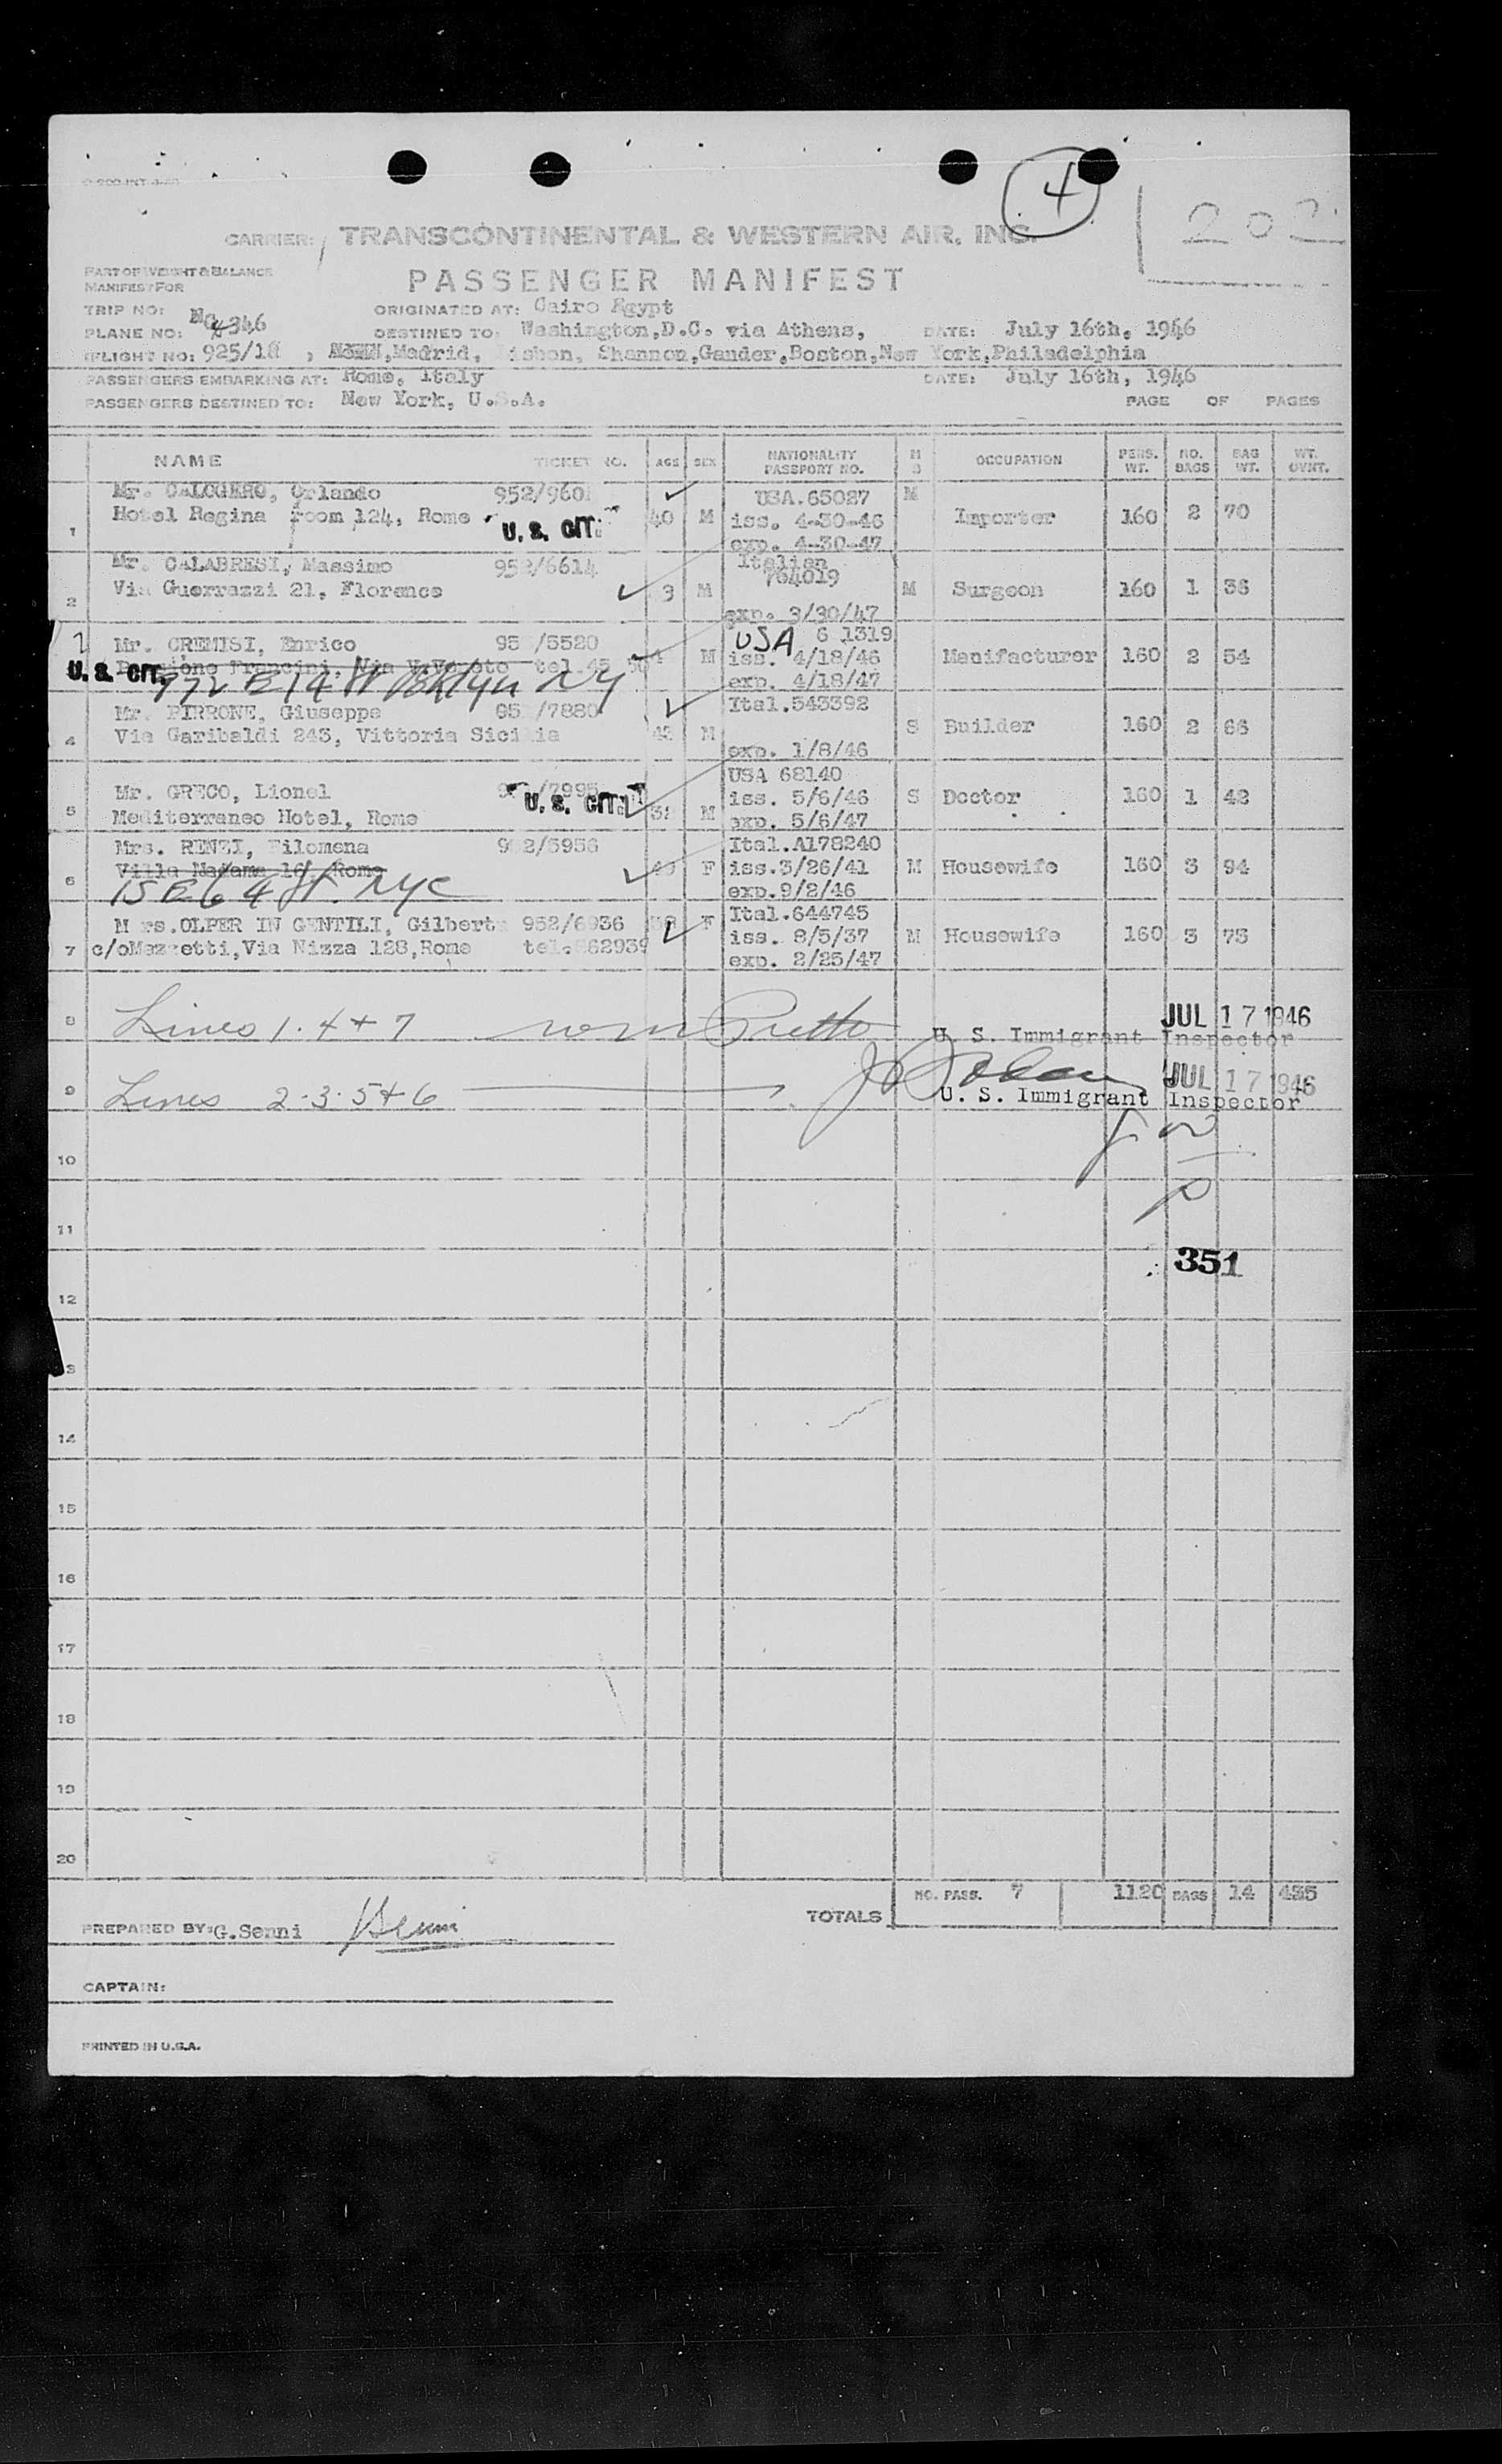 4
202
CARRIER: TRANSCONTINENTAL & WESTERN AIR, INC.
PART OF WEIGHT & BALANCE
MANIFEST FOR
PASSENGER MANIFEST
TRIP NO:
ORIGINATED AT: Cairo Egypt
PLANE NO: 346
DESTINED TO: Washington,D.C. via Athens, DATE: July 16th, 1946
FLIGHT NO: 925/18 , Madrid, Lisbon, Shannon,Gander,Boston,New York,Philadelphia
PASSENGERS EMBARKING AT: Rome, Italy DATE: July 16th, 1946
PASSENGERS DESTINED TO: New York, U.S.A. PAGE OF PAGES
NAME TICKET NO. AGE SEX NATIONALITY PASSPORT NO. M S OCCUPATION PERS. WT. NO. BAGS BAG WT. WT. OVNT.
Mr. CALOGERO, Orlando 952/960 USA.65027 M
Hotel Regina room 124, Rome U. S. CIT. 40 M iss. 4-30-46 Importer 160 2 70
1 exp. 4-30-47
Mr. CALABRESI, Massimo 952/6614 Italian
764019
2 Via Guerrazzi 21, Florence 3 M M Surgeon 160 1 36
exp. 3/30/47
Mr. CREMISI, Enrico 95 /5520 USA 6 1319
U. S. CIT. Via V.Veneto tel.45 M iss. 4/18/46 Manifacturer 160 2 54
E 14 St Bklyn NY exp. 4/18/47
Mr. PIRRONE, Giuseppe 95 /7880 Ital.543392
4 Via Garibaldi 243, Vittoria Sicilia 43 M S Builder 160 2 66
exp. 1/8/46
USA 68140
Mr. GRECO, Lionel /7995 U. S. CIT. iss. 5/6/46 S Doctor 160 1 42
5 Mediterraneo Hotel, Rome 32 M exp. 5/6/47
Mrs. RENZI, Filomena 952/5956 Ital.A178240
6 Villa Madama 16, Rome F iss.3/26/41 M Housewife 160 3 94
15 E 64 St. NYC exp.9/2/46
Mrs.OLPER IN GENTILI, Gilberta 952/6936 F Ital.644745
7 c/oMezzetti,Via Nizza 128,Rome tel.862939 iss. 8/5/37 M Housewife 160 3 73
exp. 2/25/47
8 Lines 1. 4 + 7 JUL 17 1946
U. S. Immigrant Inspector
9 Lines 2.3.5+6 JUL 17 1946
U. S. Immigrant Inspector
10
11
351
12
13
14
15
16
17
18
19
20
TOTALS NO. PASS. 7 1120 BAGS 14 435
PREPARED BY: G.Senni Senni
CAPTAIN:
PRINTED IN U.S.A.